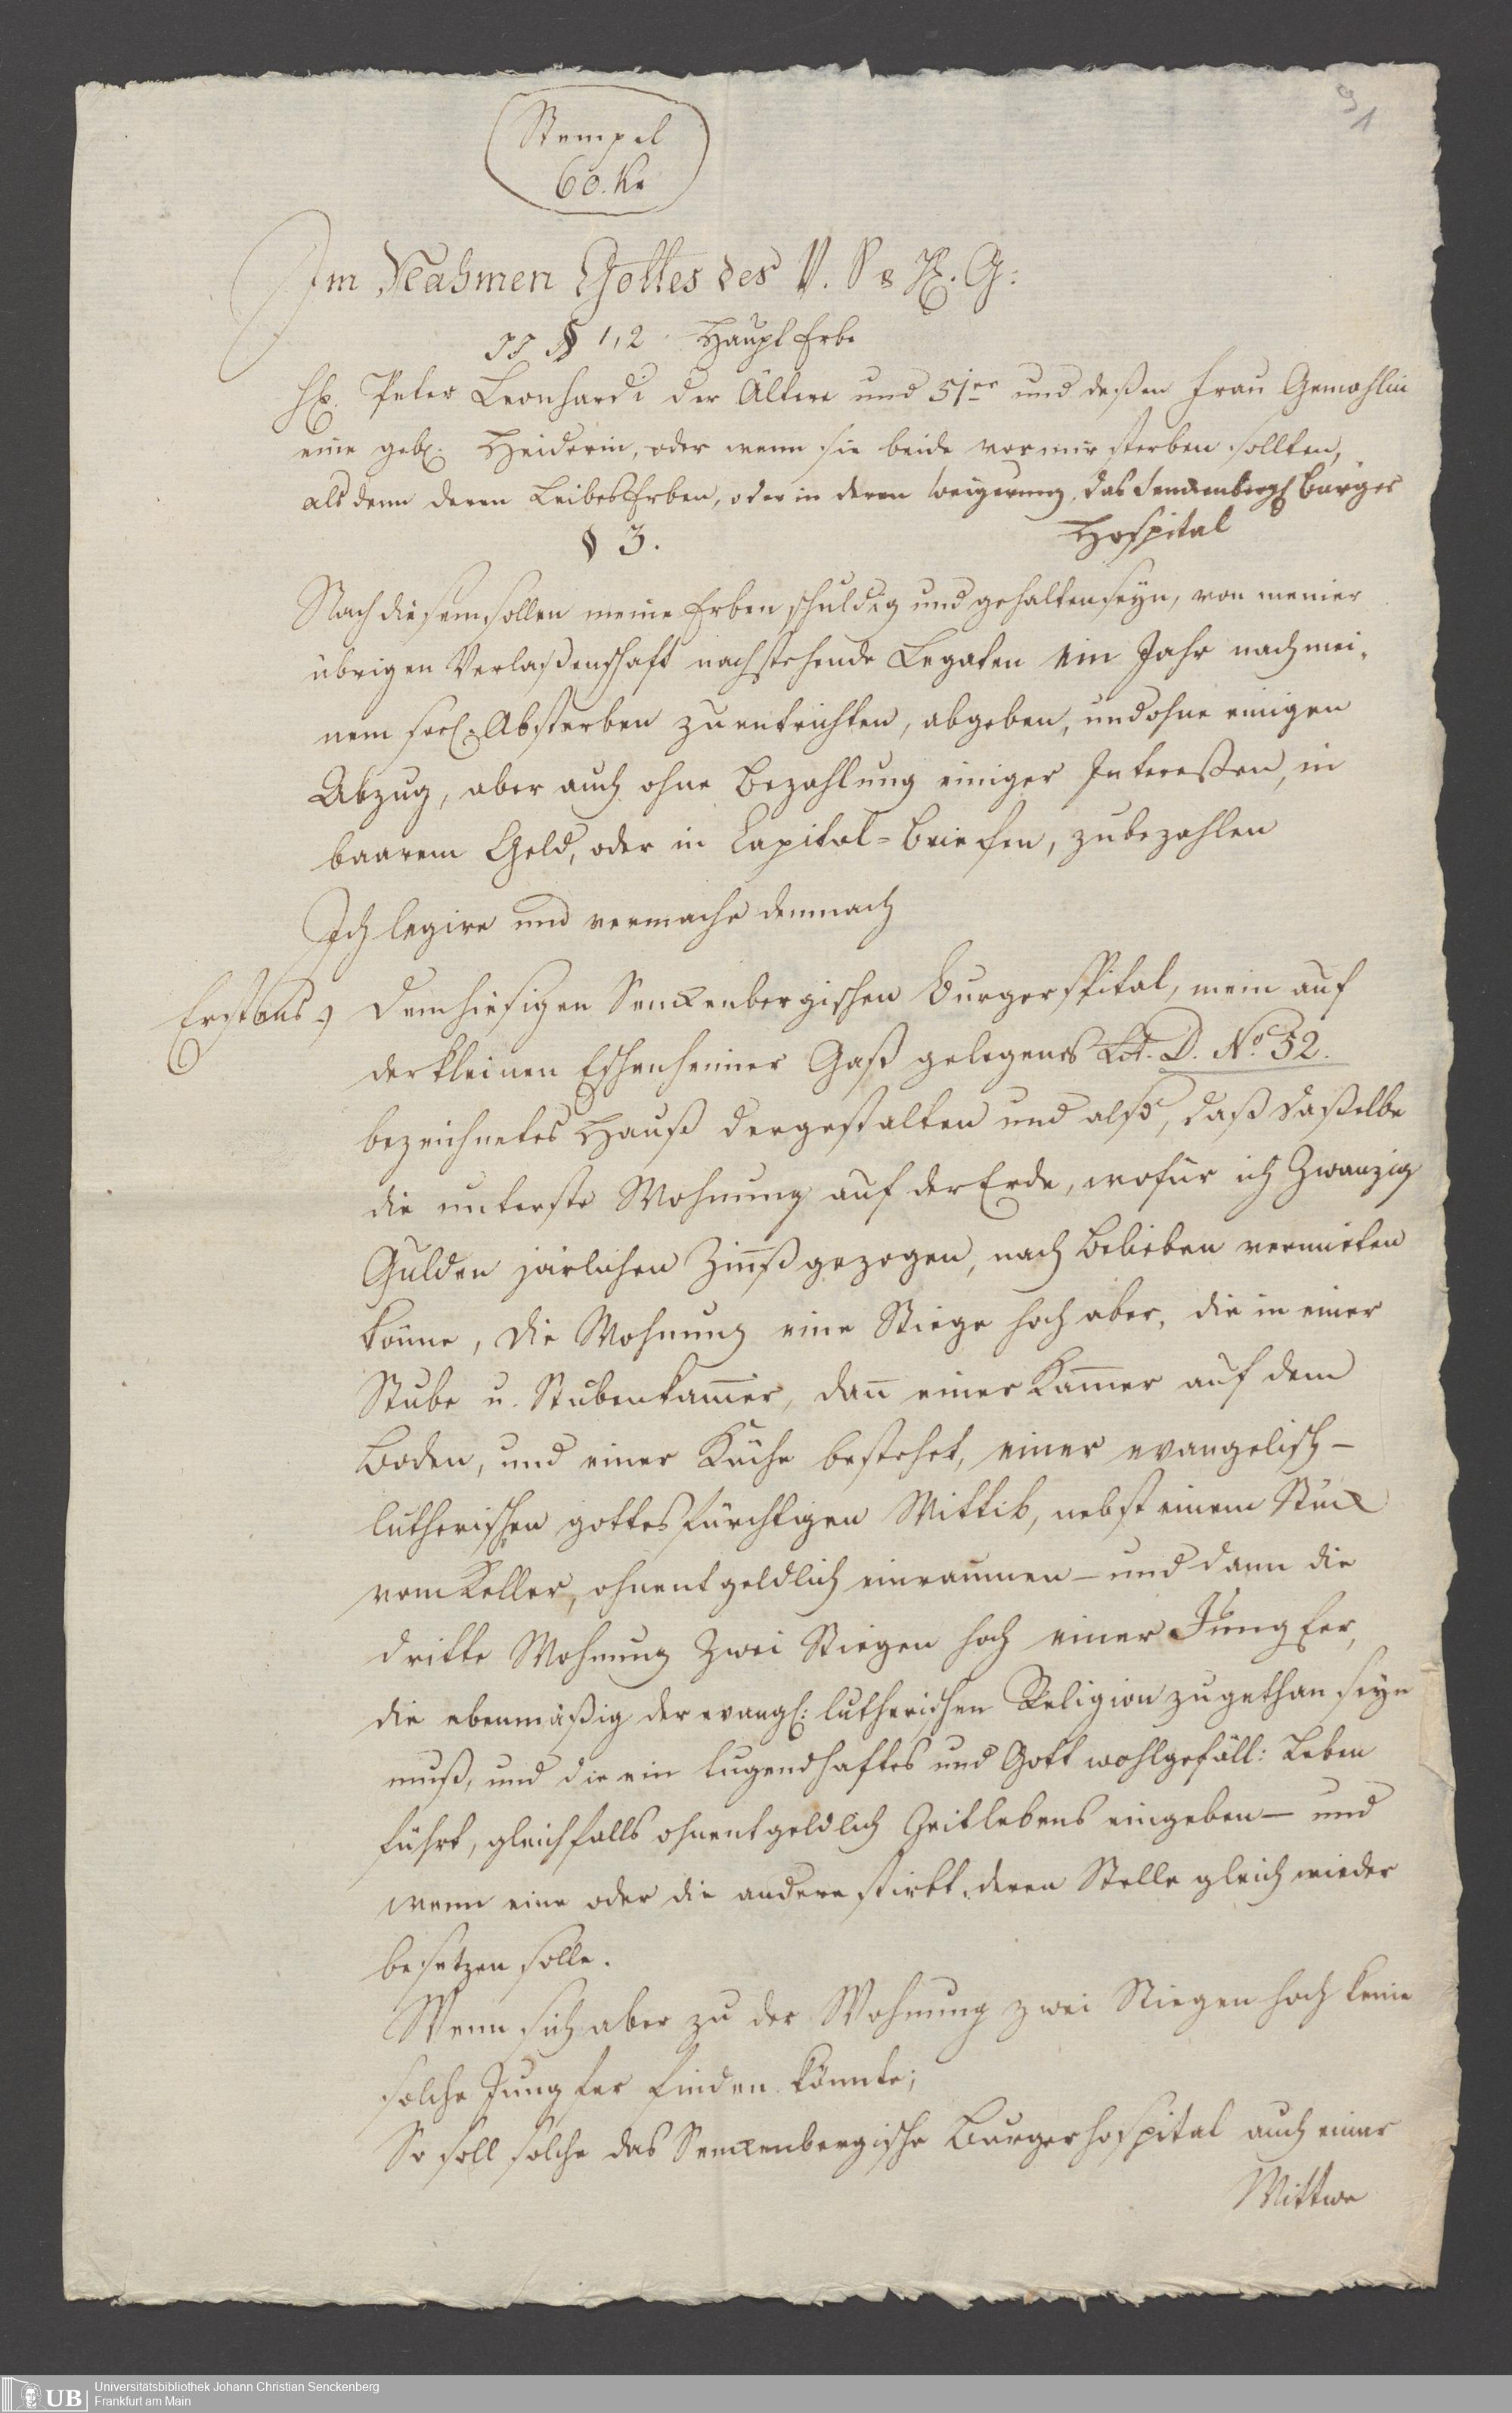 91
Stempel
60. Kr
Im Nahmen Gottes des V. S & H. G:
§ 1, 2 Haupt Erbe
H. Peter Leonhardi der Ältere und 51er und deßen Frau Gemahlin
eine geb. Heiderin, oder wenn sie beide vor mir sterben sollten,
als denn deren LeibesErben, oder in deren weigerung, das Senkenberg Bürger
Hospital
§ 3.
Nach diesem sollen meine Erben schuldig und gehalten seyn, von meiner
übrigen Verlaßenschaft nachstehende Legaten ein Jahr nach mei-
nem seel. Absterben zu entrichten, abgeben, und ohne einigen
Abzug, aber auch ohne Bezahlung einiger Intereßen, in
baarem Geld, oder in Capital-Briefen, zubezahlen
Ich legire und vermache demnach
Erstens) dem hiesigen Senckenbergischen Burgerspital, mein auf
der kleinen Eschenheimer Gaß gelegenes Lit. D. No. 52.
bezeichnetes Hauß dergestalten und also, daß daßelbe
die unterste Wohnung auf der Erde, wofür ich Zwanzig
Gulden järlichen Zinß gezogen, nach Belieben vermieten
könne, die Wohnung eine Stiege hoch aber, die in einer
Stube u. Stubenkam̅er, dan̅ einer Kam̅er auf dem
Boden, und einer Küche bestehet, einer evangelisch-
lutherischen gottesfürchtigen Wittib, nebst einem Stück
vom Keller, ohnentgeldlich einraumen - und dann die
dritte Wohnung zwei Stiegen hoch einer Jungfer,
die ebenmäßig der evangl: lutherischen Religion zugethan seyn
muß, und die ein tugendhaftes und Gott wohlgefäll: Leben
führt, gleichfalls ohnentgeldlich Zeitlebens eingeben - und
wenn eine oder die andere stirbt, deren Stelle gleich wieder
besetzen solle.
Wenn sich aber zu der Wohnung zwei Stiegen hoch keine
solche Jungfer finden könnte;
So soll solche das Senckenbergische Burgerhospital auch einer
Wittwe
UB
Universitätsbibliothek Johann Christian Senckenberg
Frankfurt am Main